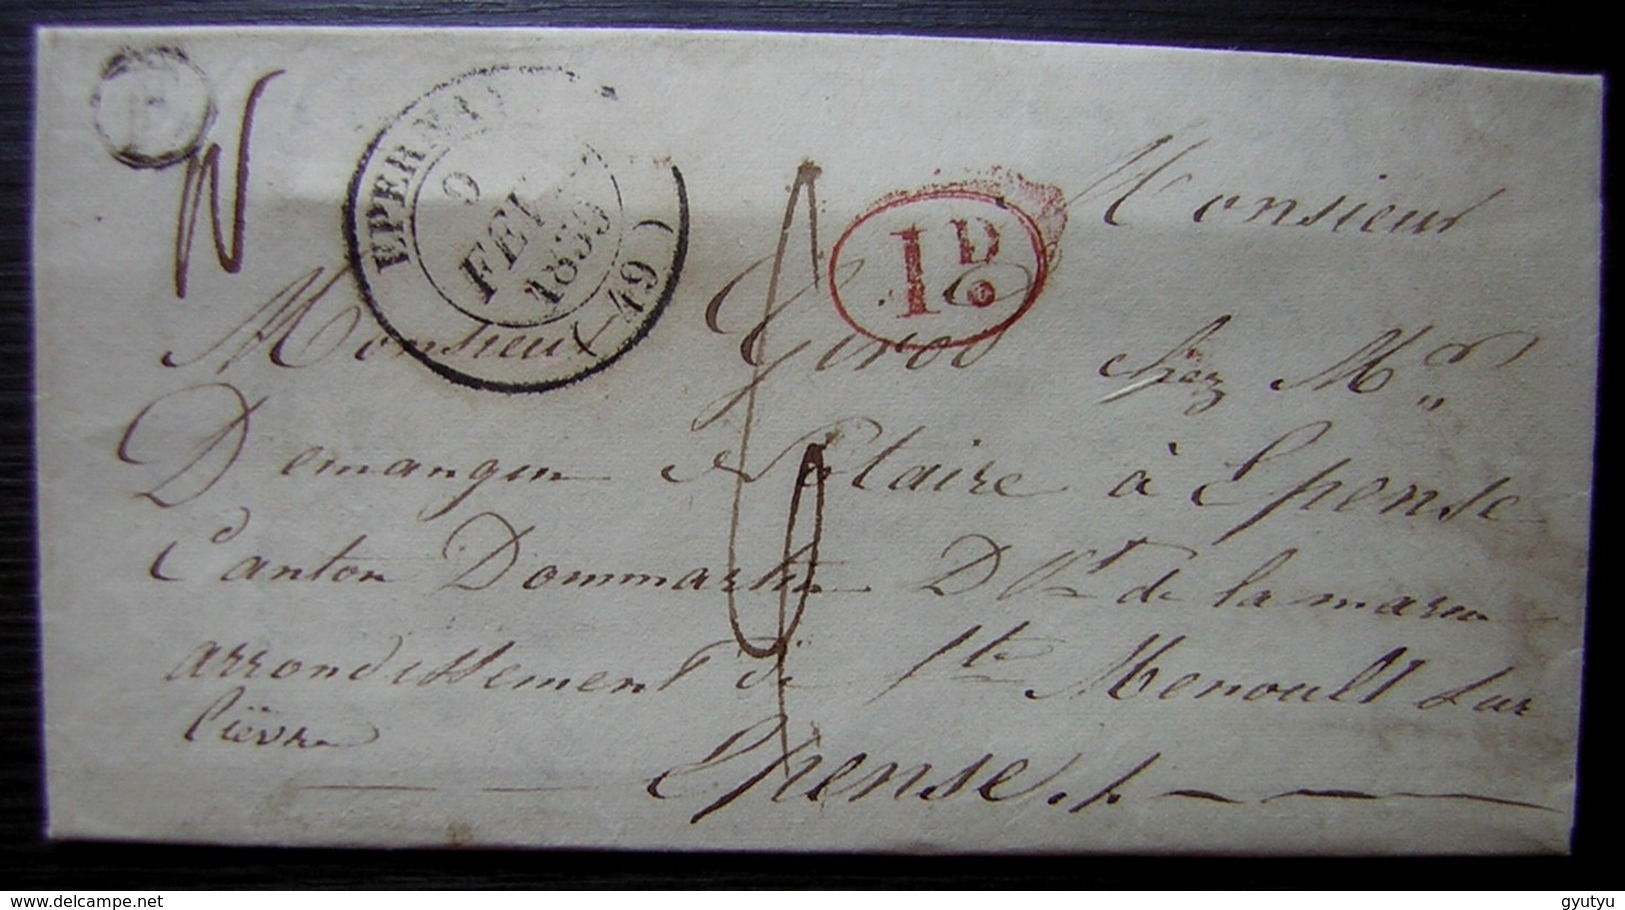 EPERNAY
9
FEV
1839
(49)
1D.
Monsieur
Monsieur Girod chez Mr
Demangin Notaire à Epense
Canton Dommartin D Vt de la marne
arrondissement de Ste Menoult sur
lïevre
Epense
delcampe.net
gyutyu